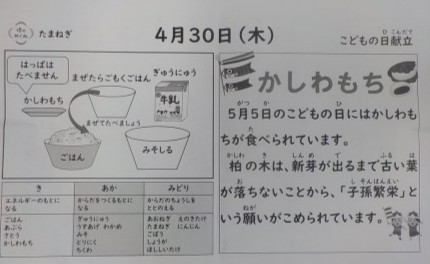 たまねぎ
4月30日(木)
こどもの日献立
はっぱは
たべません
まぜたらごもくごはん
ぎゅうにゅう
かしわもち
牛乳
まぜてたべましょう
ごはん
みそしる
き
あか
みどり
エネルギーのもとに
なる
からだをつくるもとに
なる
からだのちょうしを
ととのえる
ごはん
あぶら
さとう
かしわもち
ぎゅうにゅう
うすあげ わかめ
みそ
とりにく
ちくわ
あおねぎ えのきたけ
たまねぎ にんじん
ごぼう
しょうが
ほししいたけ
かしわもち
5月5日のこどもの日にはかしわも
ちが食べられています。
柏の木は、新芽が出るまで古い葉
が落ちないことから、「子孫繁栄」と
いう願いがこめられています。